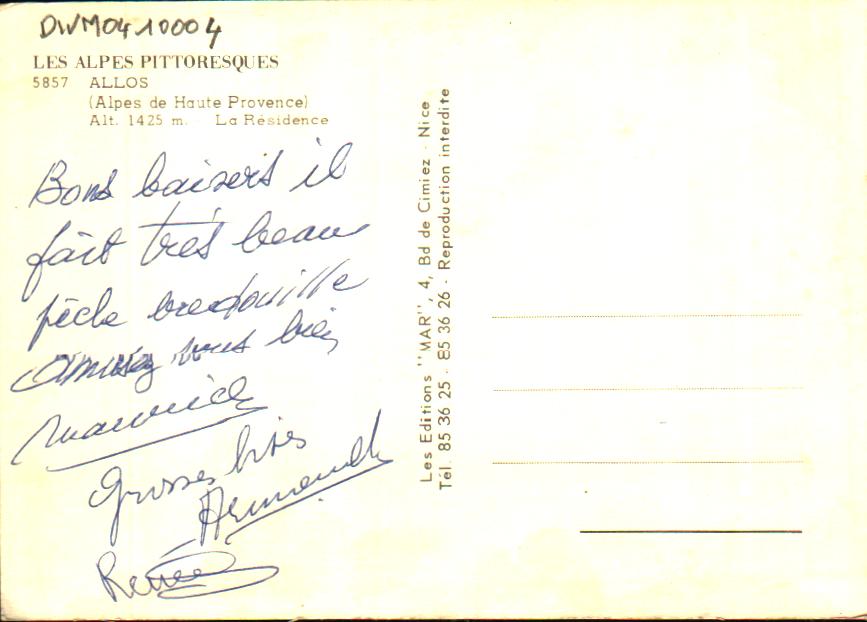 DWM0410004
LES ALPES PITTORESQUES
5857 ALLOS
(Alpes de Haute Provence)
Alt. 1425 m. - La Résidence
Bons baisers il
fait très beau
pêche bredouille
amusez vous bien
Maurice
Grosses bises
Armande
Renée
Les Editions "MAR", 4, Bd de Cimiez - Nice
Tél. 85 36 25 - 85 36 26 - Reproduction interdite